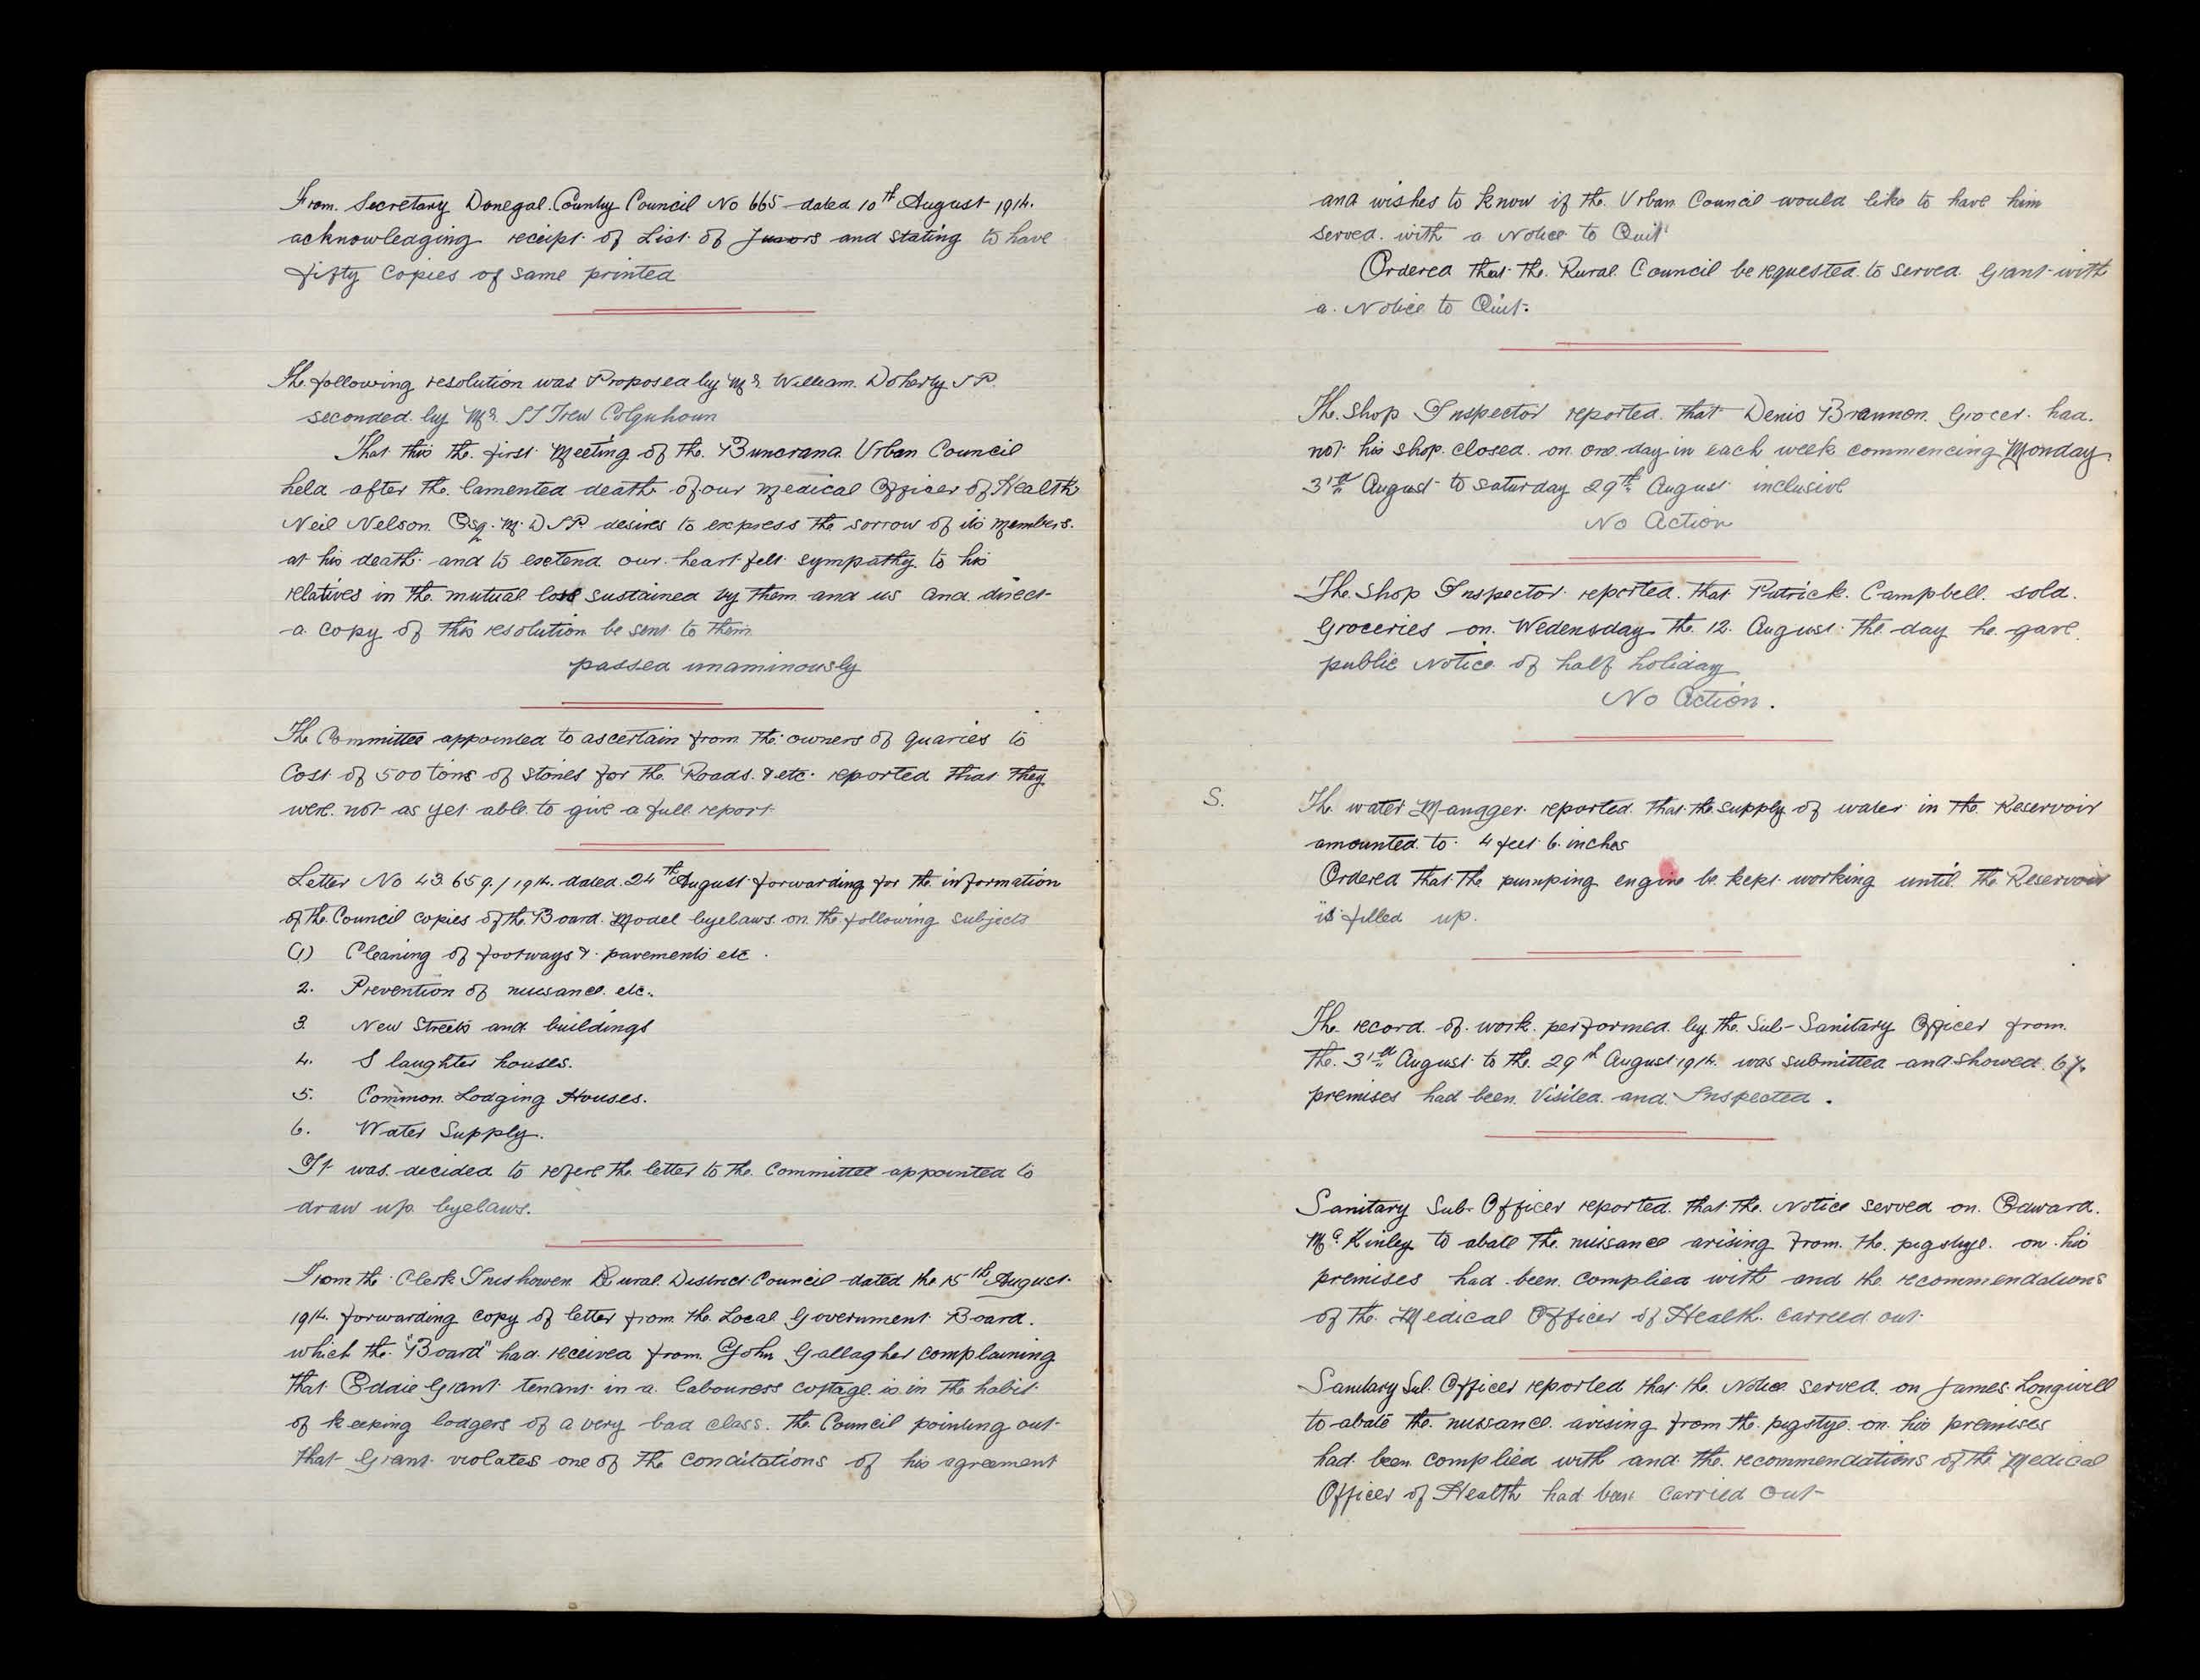 From Secretary Donegal County Council No 665 dated 10th August 1914.
acknowledging receipt of List of Jurors and stating to have
fifty copies of same printed
The following resolution was Proposed by Mr. William Doherty JP
seconded by Mr. JJ Trew Colquhoun
That this the first Meeting of the Buncrana Urban Council
held after the lamented death of our Medical Officer of Health
Neil Nelson Esq. M.D JP. desires to express the sorrow of its members.
at his death and to esctend our heart felt sympathy to his
relatives in the mutual loss sustained by them and us and direct
a copy of this resolution be sent to them
passed unaminously
The Committee appointed to ascertain from the owners of quaries to
Cost of 500 tons of stones for the Roads & etc. reported that they
were not as yet able to give a full report
Letter No 43.659/1914. dated 24th August forwarding for the information
of the Council copies of the Board Model byelaws on the following subjects
(1) Cleaning of footways & pavements etc.
2. Prevention of nuisance etc.
3 New Streets and buildings
4. Slaughter houses.
5. Common Lodging Houses.
6. Water Supply.
It was decided to refere the letter to the Committee appointed to
draw up byelaws.
From the Clerk Inishowen Rural District Council dated the 15th August
1914. forwarding copy of letter from the Local Government Board.
which the "Board" had received from John Gallagher complaining
that Eddie Grant tenant in a labourers cottage is in the habit
of keeping lodgers of a very bad class. The Council pointing out
that Grant violates one of the conditations of his agreement
and wishes to know if the Urban Council would like to have him
served with a Notice to Quit
Ordered that the Rural Council be requested to served Grant with
a Notice to Quit.
The Shop Inspector reported that Denis Brannon Grocer had
not his shop closed on one day in each week commencing Monday
31st August to Saturday 29th August inclusive
No Action
The Shop Inspector reported that Patrick Campbell sold
Groceries on Wedensday the 12. August the day he gave
public Notice of half holiday
No Action.
S.
The water Mangger reported that the supply of water in the Reservoir
amounted to 4 feet 6 inches
Ordered that the pumping engine be kept working until the Reservoir
is filled up.
The record of work performed by the Sub-Sanitary Officer from
the 31st August to the 29th August 1914. was submitted and showed 67
premises had been Visited and Inspected.
Sanitary Sub-Officer reported that the Notice served on Edward
Mc Kinley to abate the nuisance arising from the pigstye on his
premises had been complied with and the recommendations
of the Medical Officer of Health carried out
Sanitary Sub. Officer reported that the Notice served on James Longwill
to abate the nuisance arising from the pigstye on his premises
had been complied with and the recommendations of the Medical
Officer of Health had been carried out